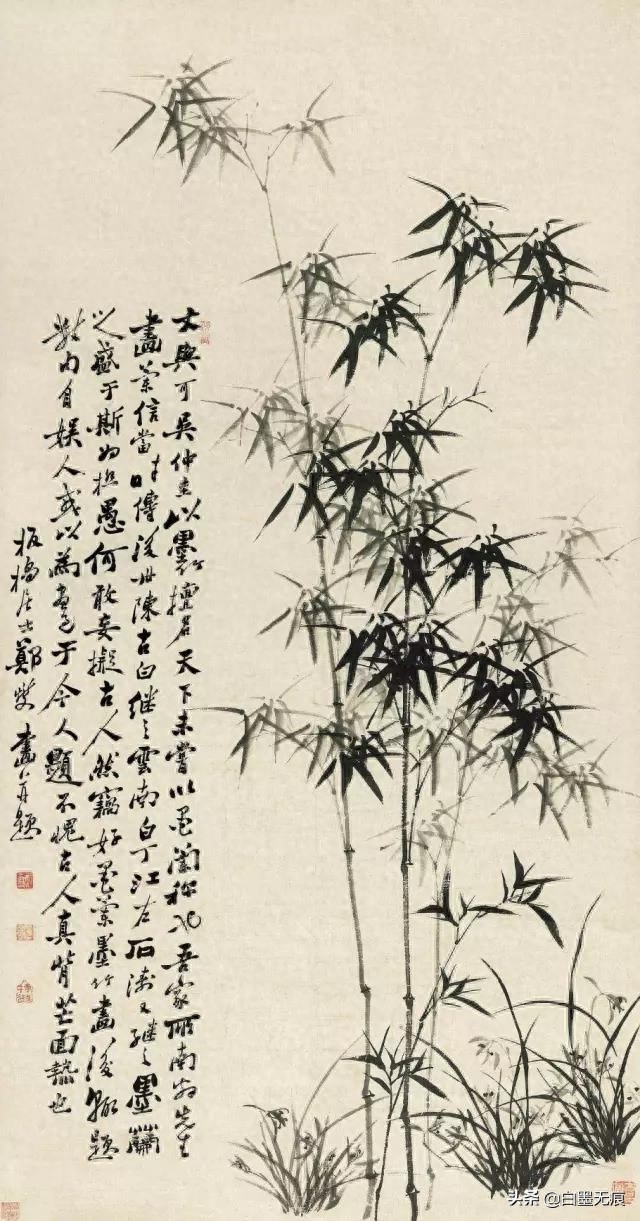 文與可吳仲圭以墨竹擅名天下未嘗以墨蘭稱也吾家所南翁先生
畫蘭信當時傳後世陳古白繼之雲南白丁江左石濤又繼之墨蘭
之盛于斯為極愚何敢妄擬古人然竊好墨蘭墨竹畫後輒題
自娛人或以為畫于今人題不愧古人真背芒面熱也
板橋居士鄭燮畫并題
头条 @白墨无痕